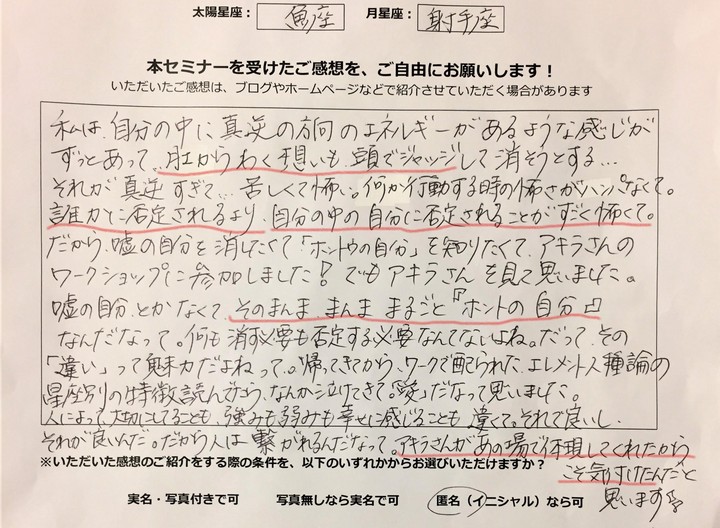 太陽星座： 魚座 月星座： 射手座
本セミナーを受けたご感想を、ご自由にお願いします！
いただいたご感想は、ブログやホームページなどで紹介させていただく場合があります
私は、自分の中に真逆の方向のエネルギーがあるような感じが
ずっとあって、肚からわく想いも、頭でジャッジして消そうとする…
それが真逆すぎて… 苦しくて怖い。何か行動する時の怖さがハンパなくて。
誰かに否定されるより、自分の中の自分に否定されることがすごく怖くて。
だから、嘘の自分を消したくて「ホントウの自分」を知りたくて、アキラさんの
ワークショップに参加しました！でもアキラさんを見て思いました。
嘘の自分とかなくて、そのまんま、まんま まるごと『ホントの自分』
なんだなって。何も消す必要も否定する必要なんてないよね。だって、その
「違い」って魅力だよねって。帰ってきてから、ワークで配られた、エレメント人種論の
星座別の特徴読んでたら、なんか泣けてきて。愛だなって思いました。
人によって、大切にしてることも、強みも弱みも幸せに感じることも 違くて。それで良いし、
それが良いんだ。だから人は繋がれるんだなって。アキラさんがあの場で体現してくれたから
こそ気付けたんだと
思います
※いただいた感想のご紹介をする際の条件を、以下のいずれかからお選びいただけますか？
実名・写真付きで可 写真無しなら実名で可 匿名（イニシャル）なら可